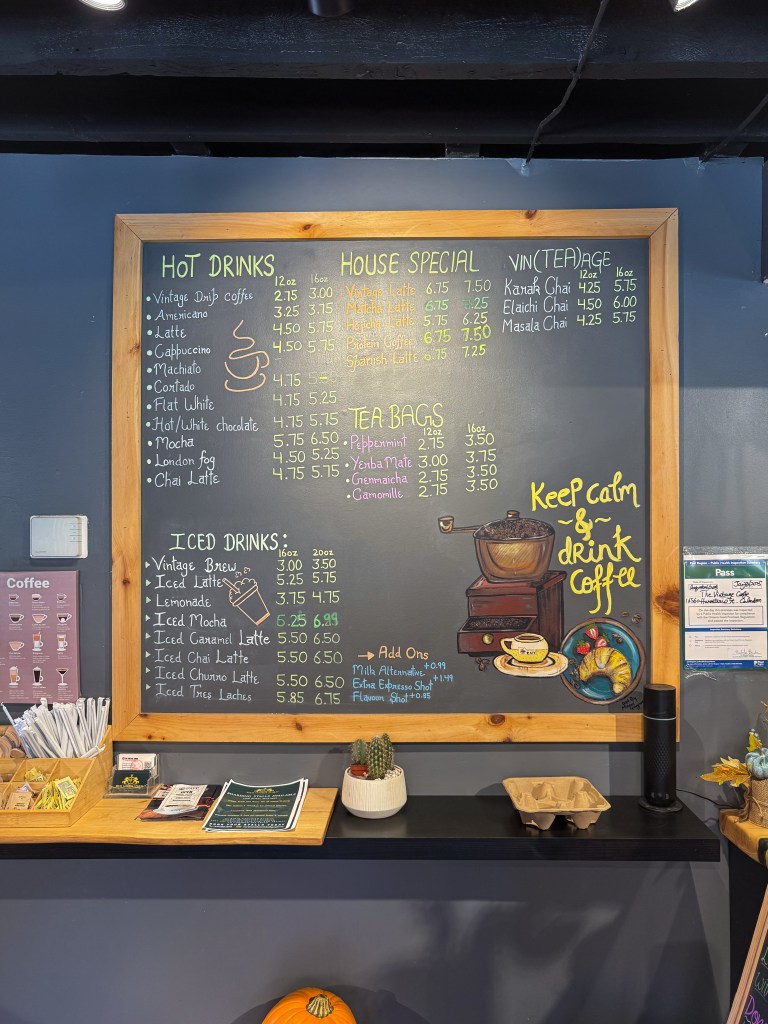 HOT DRINKS
12oz 16oz
Vintage Drip coffee 2.75 3.00
Americano 3.25 3.75
Latte 4.50 5.75
Cappuccino 4.50 5.75
Machiato
Cortado 4.75
Flat White 4.75 5.25
Hot/White chocolate 4.75 5.75
Mocha 5.75 6.50
London fog 4.50 5.25
Chai Latte 4.75 5.75
ICED DRINKS:
16oz 20oz
Vintage Brew 3.00 3.50
Iced Latte 5.25 5.75
Lemonade 3.75 4.75
Iced Mocha 6.99
Iced Caramel Latte 5.50 6.50
Iced Chai Latte 5.50 6.50
Iced Churro Latte 5.50 6.50
Iced Tres Laches 5.85 6.75
HOUSE SPECIAL
Vintage Latte 6.75 7.50
Matcha Latte 6.75
Hojicha Latte 5.75 6.25
Protein Coffee 6.75 7.50
Spanish Latte 6.75 7.25
TEA BAGS
12oz 16oz
Peppermint 2.75 3.50
Yerba Mate 3.00 3.75
Genmaicha 2.75 3.50
Camomille 2.75 3.50
VIN(TEA)AGE
12oz 16oz
Karak Chai 4.25 5.75
Elaichi Chai 4.50 6.00
Masala Chai 4.25 5.75
Keep calm
~&~
drink
coffee
→ Add Ons
Milk Alternative +0.99
Extra Espresso Shot +1.49
Flavour Shot +0.85
Coffee
Pass
The Vintage Cafe
OPEN